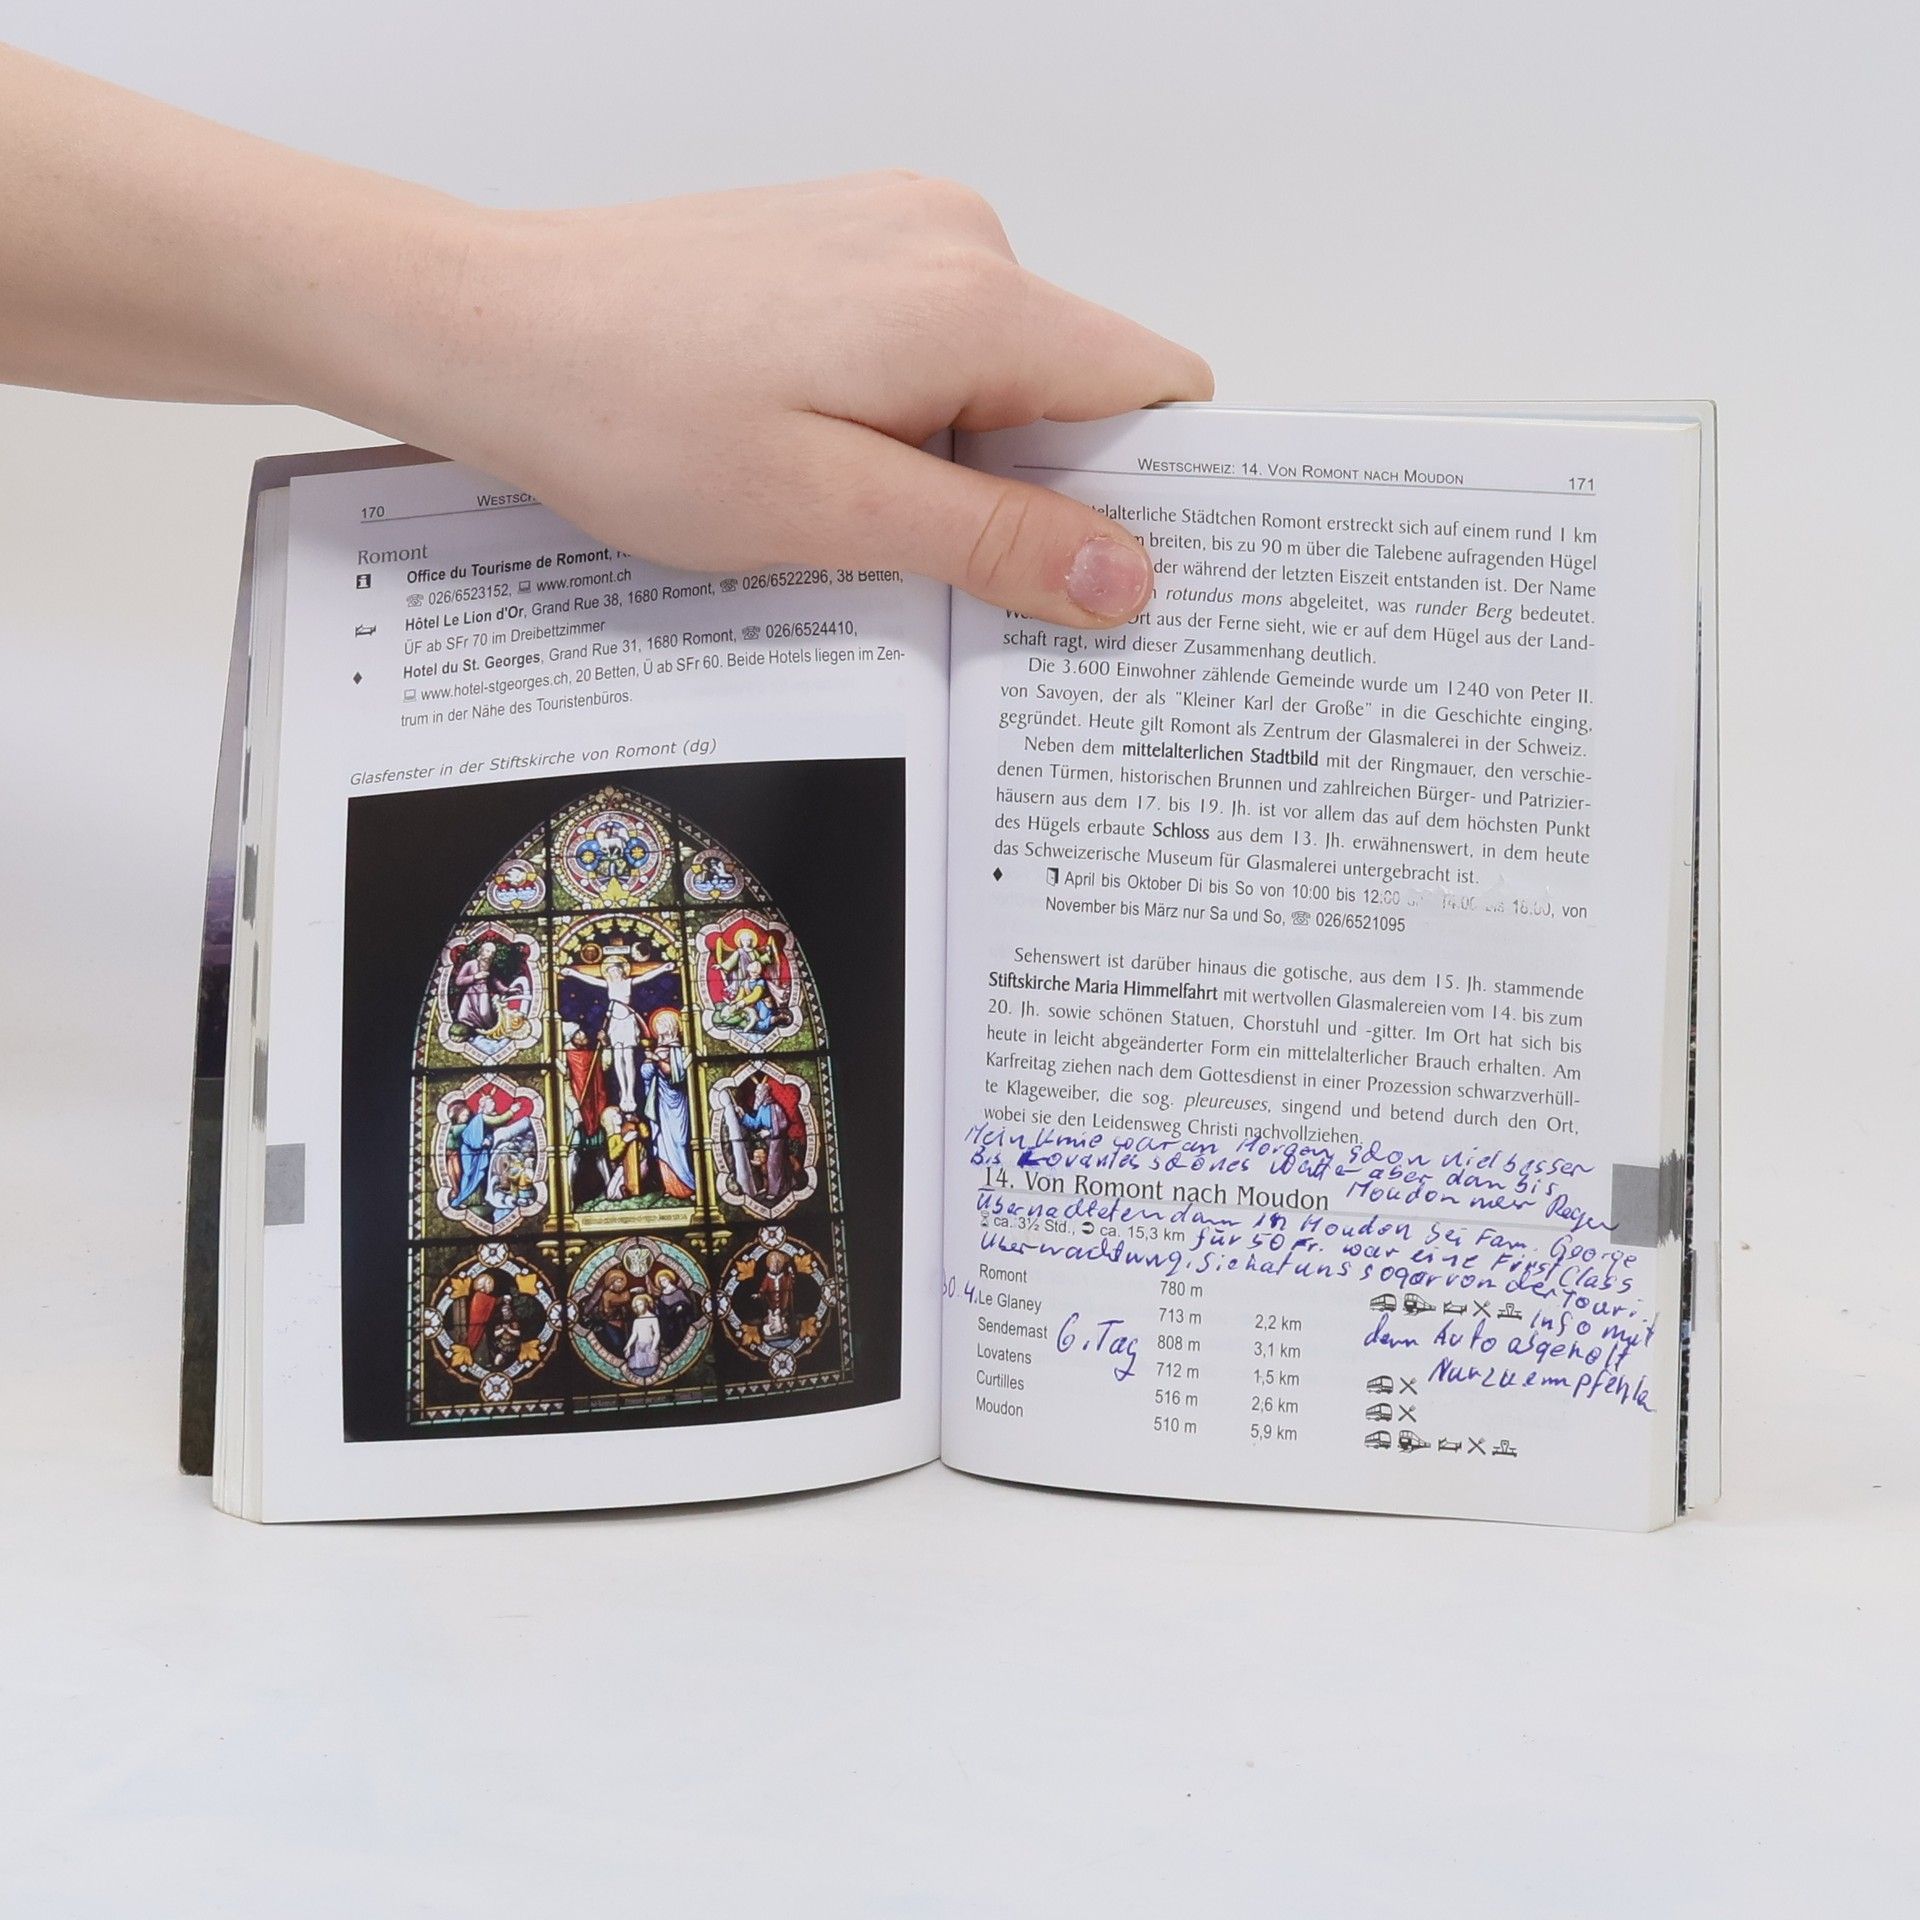 170
Romont
Office du Tourisme de Romont,
☏ 026/6523152, www.romont.ch
Hôtel Le Lion d'Or, Grand Rue 38, 1680 Romont, ☏ 026/6522296, 38 Betten,
ÜF ab SFr 70 im Dreibettzimmer
♦ Hotel du St. Georges, Grand Rue 31, 1680 Romont, ☏ 026/6524410,
www.hotel-stgeorges.ch, 20 Betten, Ü ab SFr 60. Beide Hotels liegen im Zen-
trum in der Nähe des Touristenbüros.
Glasfenster in der Stiftskirche von Romont (dg)
Westschweiz: 14. Von Romont nach Moudon 171
Städtchen Romont erstreckt sich auf einem rund 1 km
breiten, bis zu 90 m über die Talebene aufragenden Hügel
der während der letzten Eiszeit entstanden ist. Der Name
rotundus mons abgeleitet, was runder Berg bedeutet.
Ort aus der Ferne sieht, wie er auf dem Hügel aus der Land-
schaft ragt, wird dieser Zusammenhang deutlich.
Die 3.600 Einwohner zählende Gemeinde wurde um 1240 von Peter II.
von Savoyen, der als "Kleiner Karl der Große" in die Geschichte einging,
gegründet. Heute gilt Romont als Zentrum der Glasmalerei in der Schweiz.
Neben dem mittelalterlichen Stadtbild mit der Ringmauer, den verschie-
denen Türmen, historischen Brunnen und zahlreichen Bürger- und Patrizier-
häusern aus dem 17. bis 19. Jh. ist vor allem das auf dem höchsten Punkt
des Hügels erbaute Schloss aus dem 13. Jh. erwähnenswert, in dem heute
das Schweizerische Museum für Glasmalerei untergebracht ist.
♦ April bis Oktober Di bis So von 10:00 bis 12:00 14:00 bis 18:00, von
November bis März nur Sa und So, ☏ 026/6521095
Sehenswert ist darüber hinaus die gotische, aus dem 15. Jh. stammende
Stiftskirche Maria Himmelfahrt mit wertvollen Glasmalereien vom 14. bis zum
20. Jh. sowie schönen Statuen, Chorstuhl und -gitter. Im Ort hat sich bis
heute in leicht abgeänderter Form ein mittelalterlicher Brauch erhalten. Am
Karfreitag ziehen nach dem Gottesdienst in einer Prozession schwarzverhüll-
te Klageweiber, die sog. pleureuses, singend und betend durch den Ort,
wobei sie den Leidensweg Christi nachvollziehen.
Mein Knie war am Morgen schon viel besser
Bis schönes aber dan bis
14. Von Romont nach Moudon Moudon nur Regen
Übernachteten dann in Moudon bei Fam. George
ca. 3½ Std., ca. 15,3 km für 50 Fr. war eine First Class
Sie hat uns sogar von der Touri.
Romont 780 m Info mit
30.4. Le Glaney 713 m 2,2 km dem Auto abgeholt
Sendemast 6. Tag 808 m 3,1 km
Lovatens 712 m 1,5 km Nur zu empfehlen
Curtilles 516 m 2,6 km
Moudon 510 m 5,9 km